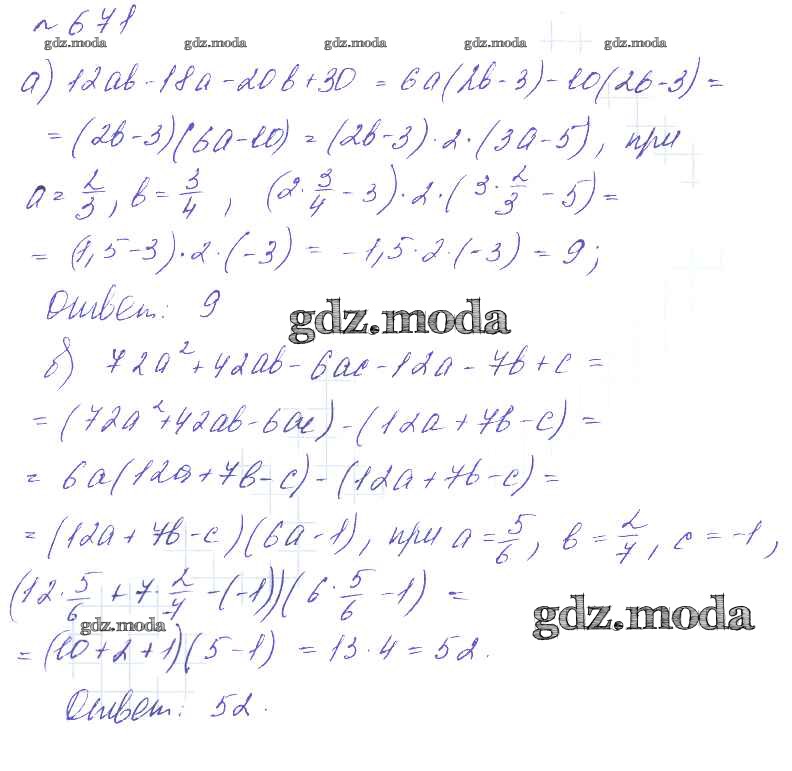 № 671
gdz.moda gdz.moda gdz.moda gdz.moda gdz.moda
а) 12ab - 18a - 20b + 30 = 6a(2b - 3) - 10(2b - 3) =
= (2b - 3)(6a - 10) = (2b - 3) · 2 · (3a - 5), при
a = 2/3, b = 3/4, (2 · 3/4 - 3) · 2 · (3 · 2/3 - 5) =
= (1,5 - 3) · 2 · (-3) = -1,5 · 2 · (-3) = 9;
Ответ: 9
gdz.moda
б) 72a² + 42ab - 6ac - 12a - 7b + c =
= (72a² + 42ab - 6ac) - (12a + 7b - c) =
= 6a(12a + 7b - c) - (12a + 7b - c) =
= (12a + 7b - c)(6a - 1), при a = 5/6, b = 2/7, c = -1,
(12 · 5/6 + 7 · 2/7 - (-1))(6 · 5/6 - 1) =
gdz.moda
gdz.moda
= (10 + 2 + 1)(5 - 1) = 13 · 4 = 52.
Ответ: 52.